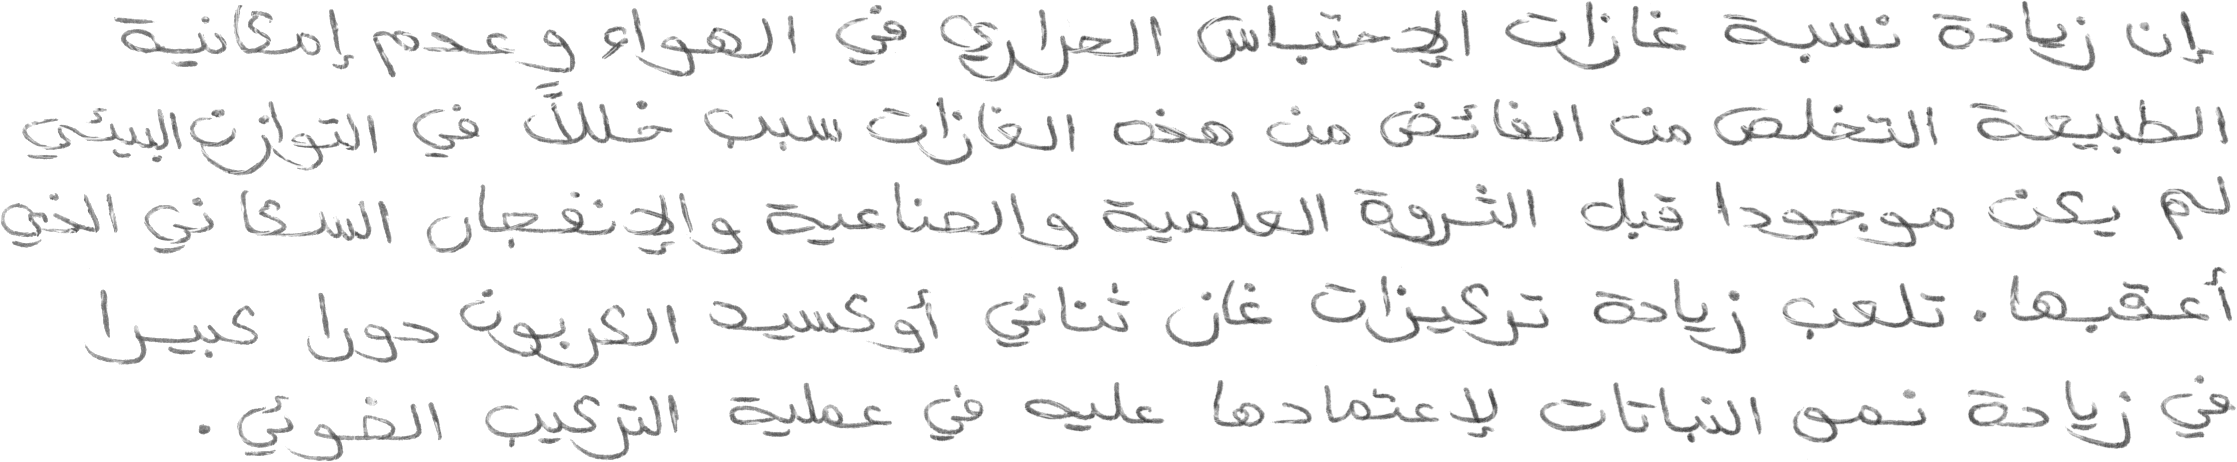 إن زيادة نسبة غازات الإحتباس الحراري في الهواء وعدم إمكانية
الطبيعة التخلص من الفائض من هذه الغازات سبب خللاً في التوازن البيئي
لم يكن موجودا قبل الثروة العلمية والصناعية والإنفجار السكاني الذي
أعقبها. تلعب زيادة تركيزات غاز ثنائي أوكسيد الكربون دورا كبيرا
في زيادة نمو النباتات لإعتمادها عليه في عملية التركيب الضوئي.